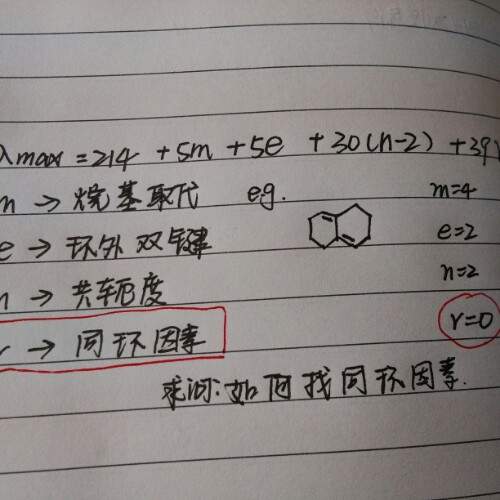 λmax = 214 + 5m + 5e + 30(n-2) + 39r
m → 烷基取代 eg. m=4
e → 环外双键 e=2
n → 共轭度 n=2
r → 同环因素 r=0
求问:如何找同环因素.